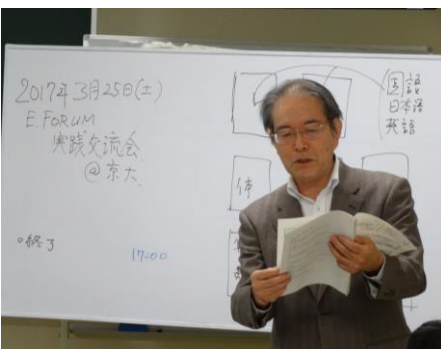 2017年3月25日(土)
E.FORUM
実践交流会
@京大
○終了
17:00
国語
日本語
英語
体